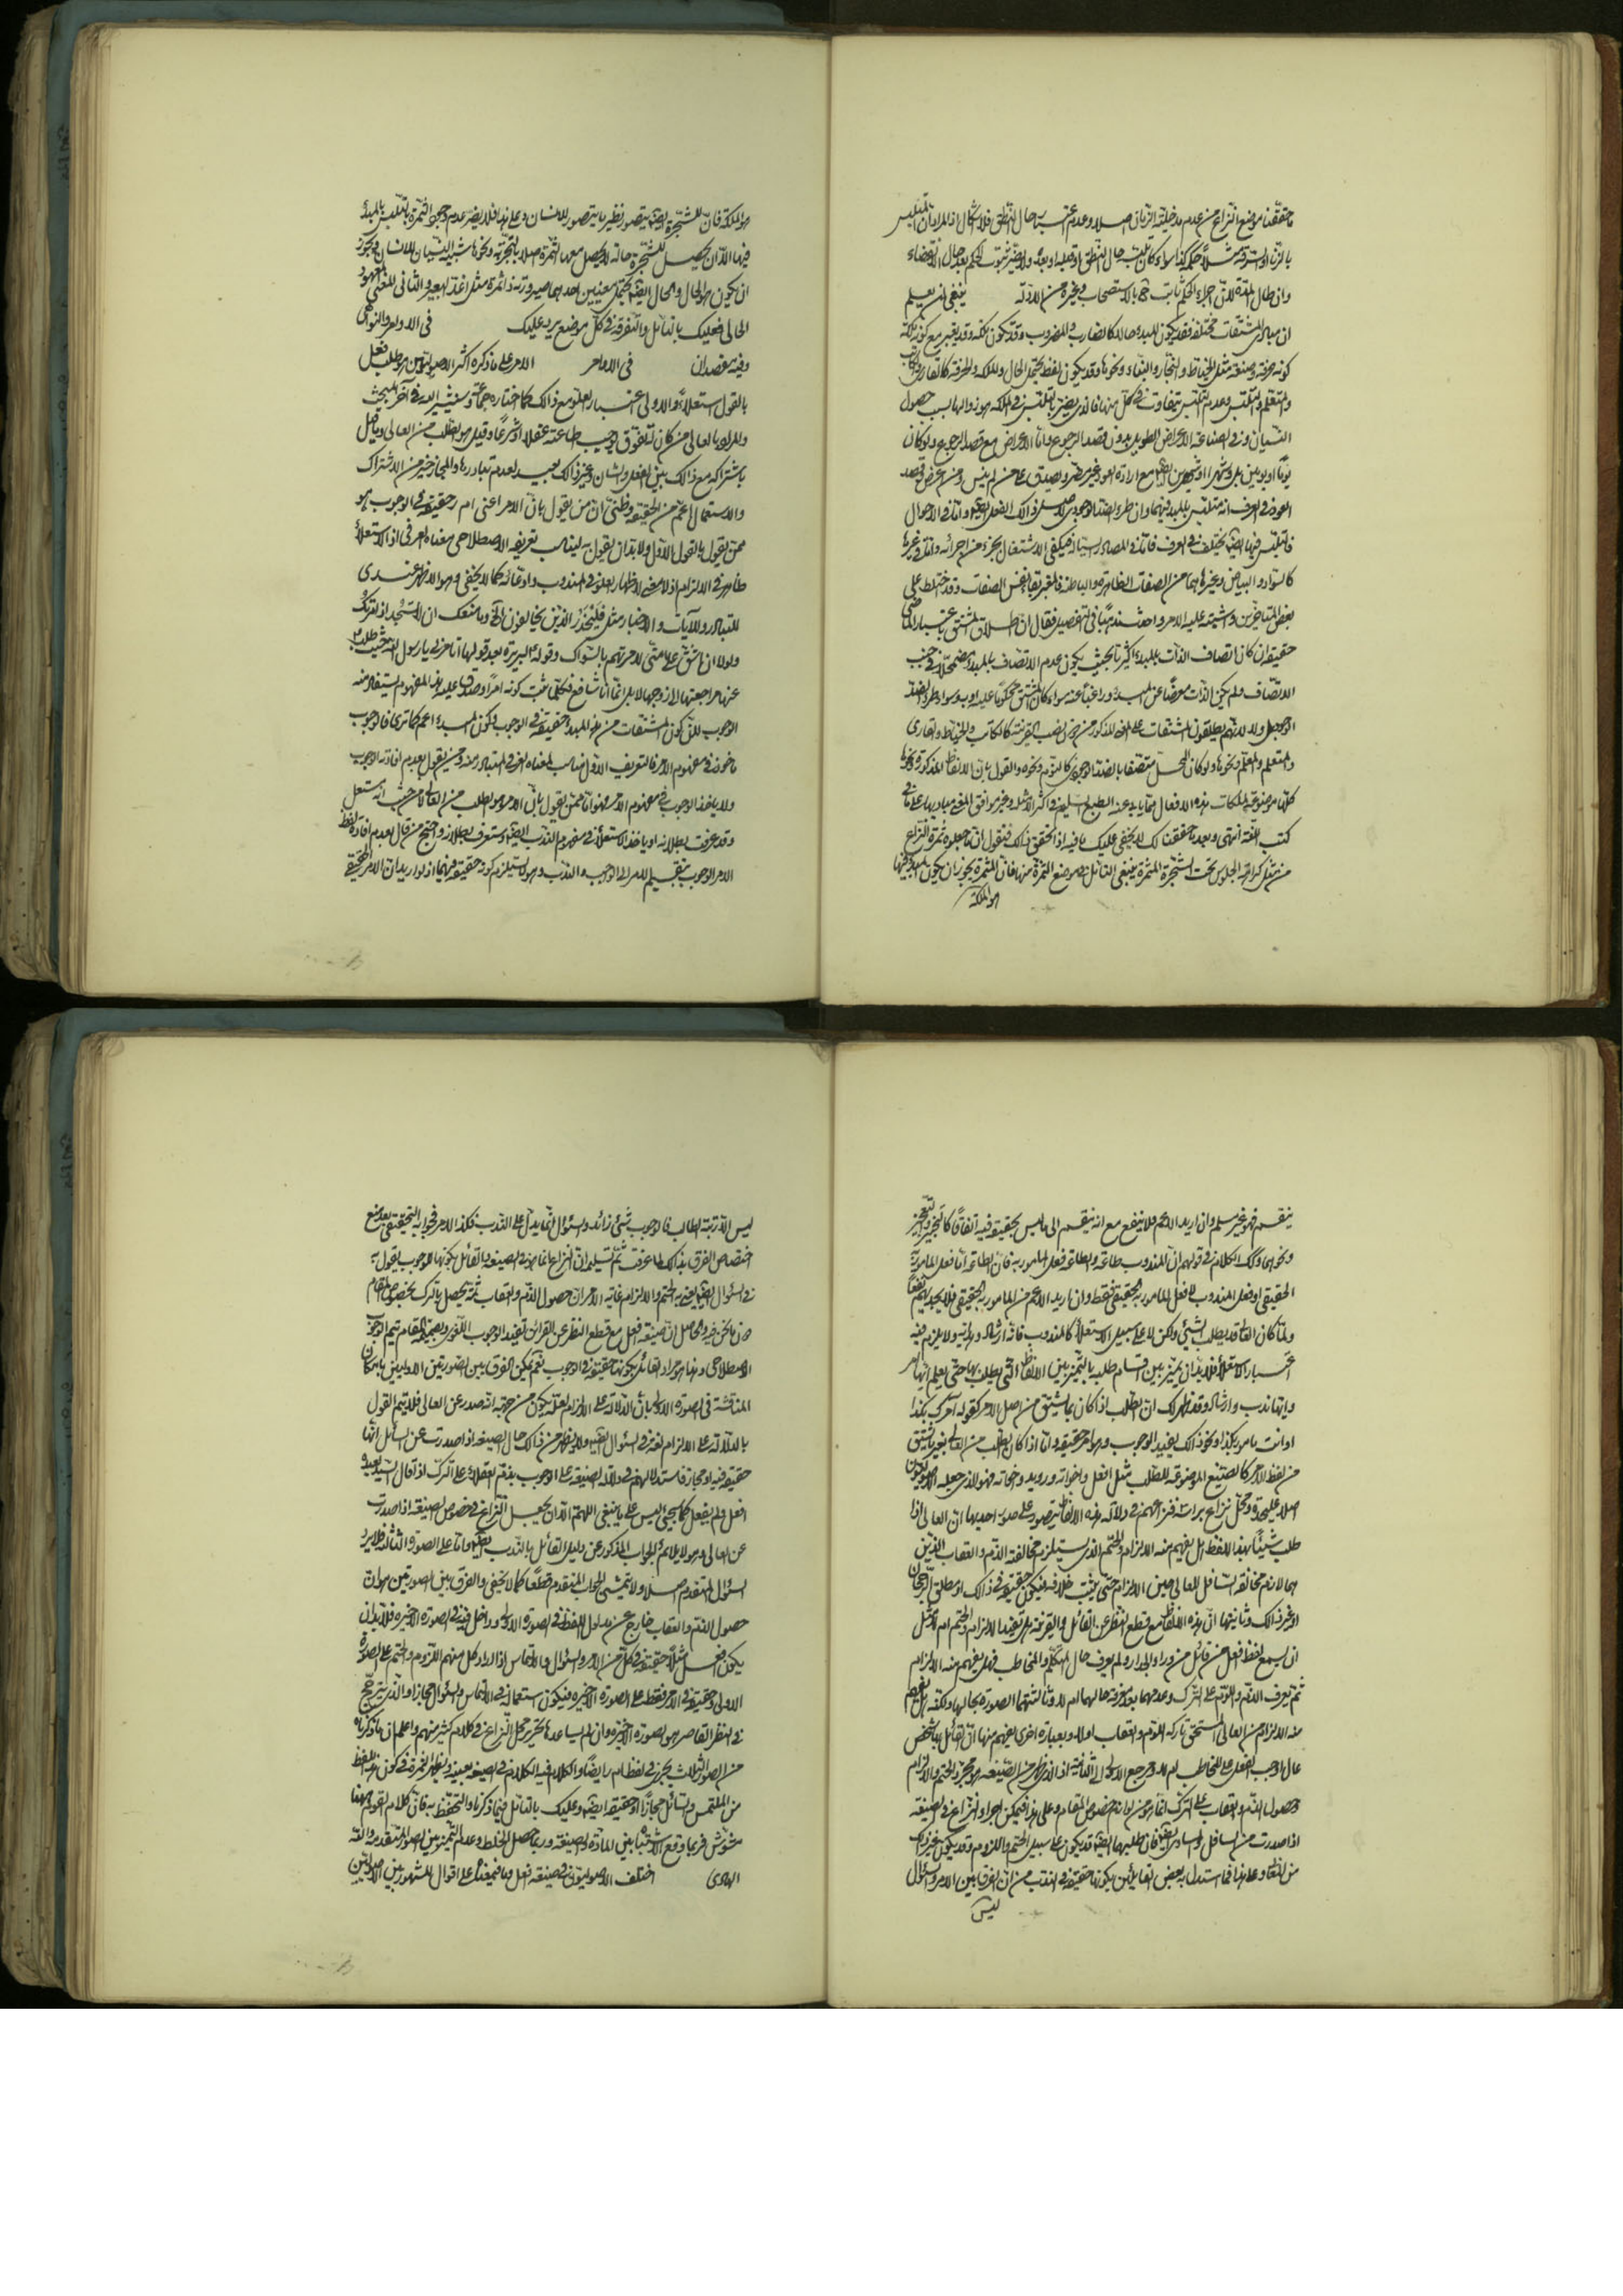 ما حققنا موضع النزاع من عدم مدخلية الزمان اصلا وعدم اعتبار حال النطق فلا اشكال اذ المراد ان المتلبس
بالزنا او السرقة مثلا حكمه كذا سواء كان تلبسه حال النطق او قبله او بعده ولا يضر ثبوت الحكم بعد حال الانقضاء
وان طال المدة لان اجراء الحكم ثابت ح بالاستصحاب وغيره من الادلة ينبغى ان يعلم
ان مبادى المشتقات مختلفة فقد يكون المبدء حالا كالضارب والمضروب وقد يكون ملكة وقد يعتبر مع كونه ملكة
كونه حرفة وصنعة مثل الخياط والنجار والبناء ونحوها وقد يكون لفظ يحتمل الحال والملكة والحرفة كالقارى والكاتب
والمتعلم والتلبس وعدم التلبس يتفاوت فى كل منها فالذى يضر بالتلبس فى الملكة هو زوالها بسبب حصول
النسيان وفى الصناعة الاعراض الطويل بدون قصد الرجوع واما الاعراض مع قصد الرجوع ولو كان
يوما او يومين بل وشهرا او شهرين ايضا مع ارادة العود غير مضر ويصدق على من لم ينس ومن اعرض وقصد
العود فى العرف انه متلبس بالمبدء فيهما وان طرء الضد الوجودى لاصل ذلك الفعل ايضا واما فى الاحوال
فالتلبس فيها ايضا يختلف فى العرف فاما فى المصادر السيالة فيكفى الاشتغال بجزء من اجزائه واما فى غيرها
كالسواد والبياض وغيرهما من الصفات الظاهرة والباطنة فالمعتبر بقاء نفس الصفات وقد اختلط على
بعض المتأخرين واشتبه عليه الامر واحدث مذهبا فى التفصيل فقال ان اطلاق المشتق باعتبار الماضى
حقيقة ان كان اتصاف الذات بالمبدء اكثريا بحيث يكون عدم الاتصاف بالمبدء مضمحلا فى جنب
الاتصاف ولم يكن الذات معرضا عن المبدء وراغبا عنه سواء كان المشتق محكوما عليه او به وسواء طرء الضد
الوجودى او لا لانهم يطلقون المشتقات على المعنى المذكور من دون نصب القرينة كالكاتب والخياط والقارى
والمتعلم والمعلم ونحوها ولو كان المحل متصفا بالضد الوجودى كالنوم ونحوه والقول بان الالفاظ المذكورة ونحوها
كلها موضوعة لملكات هذه الافعال مما يابى عنه الطبع السليم فى اكثر الامثلة وغير موافق لمعنى مباديها على ما فى
كتب اللغة انتهى وبعد ما حققنا لك لا يخفى عليك ما فيه اذا تحقق ذلك فنقول ان ما جعلوه ثمرة النزاع
من مثل كراهة الجلوس تحت الشجرة المثمرة ينبغى التأمل فى موضع الثمرة منها فان المثمرة يجوز ان يكون المبدء فيها
هو الملكة
هو الملكة فان للشجرة ايضا يتصور نظير ما يتصور للانسان وعلى هذا فلا يضر عدم وجود الثمرة بالتلبس بالمبدء
فيها الا ان يحصل للشجرة حالة لا يحصل معها الثمرة اصلا بالتجربة ونحوها شبيه النسيان للانسان ويجوز
ان يكون هو الحال والحال ايضا يحتمل معنيين احدهما صيرورته ذا ثمرة مثل اغد البعير والثانى المعنى المعهود
الحالى فعليك بالتأمل والتفرقة فى كل موضع يرد عليك فى الاوامر والنواهى
وفيه مقصدان فى الاوامر الامر على ما ذكره اكثر الاصوليين هو طلب فعل
بالقول استعلاء والاولى اعتبار العلو مع ذلك كما اختاره جماعة وسنشير اليه فى آخر المبحث
والمراد بالعالى من كان له تفوق يوجب طاعته عقلا او شرعا وقيل هو الطلب من العالى وما قيل
باشتراكه مع ذلك بين الفعل والشان وغير ذلك بعيد لعدم تبادرها والمجاز خير من الاشتراك
والاستعمال اعم من الحقيقة وظنى ان من يقول بان الامر اعنى ا م ر حقيقة فى الوجوب هو
ممن يقول بالقول الاول ولا بد ان يقول به ليناسب تعريفه الاصطلاحى معناه العرفى اذ الاستعلاء
ظاهر فى الالزام اذ لا معنى لاظهار العلو فى المندوب وادعائه كما لا يخفى وهو الاظهر عندى
للتبادر وللآيات والاخبار مثل فليحذر الذين يخالفون الخ وما منعك ان لا تسجد اذ امرتك
ولولا ان اشق على امتى لامرتهم بالسواك وقوله لبريرة بعد قولها اتامرنى يا رسول الله حيث طلب
عنها مراجعتها الى زوجها لا بل انما انا شافع فكلما يثبت كونه امرا وصدق عليه هذا المفهوم يستفاد منه
الوجوب لان كون المشتقات من هذا المبدء حقيقة فى الوجوب وكون المبدء اعم كما ترى فالوجوب
ماخوذ فى مفهوم الامر فالتعريف الاول مناسب لمعناه العرفى المتبادر منه ومن يقول بعدم افادته الوجوب
ولا ياخذ الوجوب فى مفهوم الامر فهو انما ممن يقول بان الامر هو الطلب من العالى لا من حيث انه مستعل
وقد عرفت بطلانه او ياخذ الاستعلاء فى مفهوم الندب ايضا وستعرف بطلانه واحتج من قال بعدم افادة لفظ
الامر الوجوب بتقسيم الامر الى الوجوب والندب وهو لا يستلزم كونه حقيقة فيهما اذ لو اريد ان الامر الحقيقى
ينقسم فهو غير مسلم وان اريد الاعم فلا ينفع مع انه ينقسم الى ما ليس بحقيقة فيه اتفاقا كالتخيير والتعجيز
ونحوهما وكذلك الكلام فى قولهم ان المندوب طاعة والطاعة فعل المامور به فان الطاعة انما فعل المامور به
الحقيقى او فعل المندوب لا فعل المامور به الحقيقى فقط وان اريد الاعم من المامور به الحقيقى فلا يجديهم نفعا
ولما كان العالى قد يطلب الشىء ولكن لا على سبيل الاستعلاء كالمندوب فانه ارشاد وهداية ولا يلزم فيه
اعتبار الاستعلاء فلا بد ان يميز بين اقسام طلبه بالتميز بين الالفاظ التى يطلب بها حتى يعلم ايها امر
وايها ندب وارشاد وقد ظهر لك ان الطلب اذا كان بما يشتق من اصل الامر كقوله آمرك بكذا
او انت مامور بكذا ونحو ذلك يفيد الوجوب وهو امر حقيقة واما اذا كان الطلب من العالى بغير ما يشتق
من لفظ الامر كالصيغ الموضوعة للطلب مثل افعل واخواته ورويد واخواته فهو الذى جعله الاصوليون
اصلا عليحدة ومحل نزاع براسه فنزاعهم فى دلالة هذه الالفاظ يتصور على صور احديها ان العالى اذا
طلب شيئا بهذا اللفظ هل يفهم منه الالزام والحتم الذى يستلزم مخالفته الذم والعقاب الذين
هما لازم مخالفة السافل للعالى حين الالزام حتى يثبت خلافه فيكون حقيقة فى ذلك او مطلق الرجحان
او غير ذلك وثانيها ان هذه اللفظة مع قطع النظر عن القائل والقرينة هل تفيد الالزام والحتم ام لا مثل
ان يسمع لفظ افعل من قائل من وراء الجدار ولم يعرف حال المتكلم والمخاطب فهل يفهم منه الالزام
ثم يعرف الذم واللوم على الترك وعدمهما بعد معرفة حالهما ام لا وثالثتهما الصورة بحالها ولكنه هل يفهم
منه الالزام من العالى المستحق تاركه اللوم والعقاب او لا وبعبارة اخرى يفهم منها ان القائل بها شخص
عال اوجب الفعل على المخاطب ام لا ومرجع الاولى الى الثانية اذ الذى يظهر من الصيغة هو مجرد الحتم والالزام
وحصول الذم والعقاب على الترك انما هو من لوازم خصوص المقام وعلى هذا فيمكن اجراء النزاع فى الصيغة
اذا صدرت من السافل والمساوى ايضا فان طلبهما ايضا قد يكون على سبيل الحتم واللزوم وقد يكون بغير ذلك
من المعانى وعلى هذا فما استدل به بعض القائلين بكونها حقيقة فى الندب من ان الفرق بين الامر والسؤال
ليس
ليس الا رتبة الطالب فالوجوب شىء زائد والسؤال انما يدل على الندب فكذا الامر فجوابه التحقيقى بعد منع
اختصاص الفرق بذلك لما عرفت ثم تسليم ان النزاع انما هو فى الصيغة والقائل بكونها للوجوب يقول به
فى السؤال ايضا يعنى به الحتم والالزام غاية الامر ان حصول الذم والعقاب ثمة يحصل بالترك بخصوص المقام
فيما نحن فيه والحاصل ان صيغة افعل مع قطع النظر عن القرائن تفيد الوجوب اللغوى وبضميمة المقام يتم الوجوب
الاصطلاحى وهذا هو مراد القائل بكونها حقيقة فى الوجوب نعم يمكن الفرق بين الصورتين الاوليين بامكان
المناقشة فى الصورة الاولى بان الدلالة على الالزام لعله يكون من جهة انه صدر عن العالى فلا يتم القول
بالدلالة على الالزام لغة فى السؤال ايضا ولا يظهر من ذلك حال الصيغة اذا صدرت عن السائل انها
حقيقة فيه او مجاز فاستدلالهم فى دلالة الصيغة على الوجوب بذم العقلاء على الترك اذا قال السيد لعبده
افعل ولم يفعل كما سيجىء ليس على ما ينبغى اللهم الا ان يجعل النزاع فى خصوص الصيغة اذا صدرت
عن العالى وهو لا يلائم الجواب المذكور عن دليل القائل بالندب ايضا واما على الصورة الثالثة فلا يرد
السؤال المتقدم اصلا ولا يتمشى الجواب المتقدم قطعا كما لا يخفى والفرق بين الصورتين هو ان
حصول الذم والعقاب خارج عن مدلول اللفظ فى الصورة الاولى وداخل فيه فى الصورة الاخيرة فلا بد ان
يكون افعل مثلا حقيقة فى كل من الامر والسؤال والالتماس اذا اراد كل منهم اللزوم والحتم على الصورة
الاولى وحقيقة فى الامر فقط على الصورة الاخيرة فيكون استعماله فى الالتماس والسؤال مجازا والذى يترجح
فى النظر القاصر هو الصورة الاخيرة وان لم يساعدها تحرير محل النزاع فى كلام كثير منهم واعلم ان ما ذكرناه
من الصور الثلاث يجرى فى لفظ ا م ر ايضا والكلام فيه الكلام فى الصيغة بعينه ويظهر الثمرة فى كون هذا اللفظ
من الملتمس والسائل مجازا او حقيقة ايضا وعليك بالتأمل فيما ذكرنا والتحفظ به فان كلام القوم هيهنا
مشوش فربما وقع الاشتباه بين المادة والصيغة وربما حصل الخلط وعدم التميز بين الصور المتقدمة والله
الهادى اختلف الاصوليون فى صيغة افعل وما فى معناه على اقوال المشهور بين الاصوليين